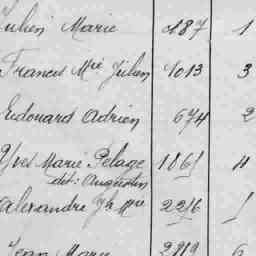 Julien Marie 487 1
Francis Mie Julien 1013 3
Edouard Adrien 674 2
Yves Marie Pelage 1861 4
dit: Augustin
Alexandre Jh Mie 2216 1
Jean Marie 2719 6